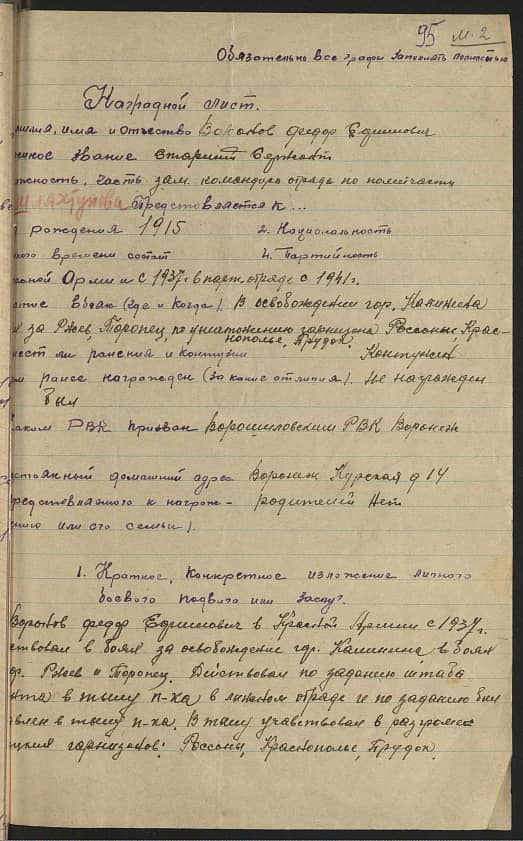 95 М. 2
Обязательно все графы заполнять полностью
Наградной лист.
милия, имя и отчество Воронов Федор Ефимович
нское звание Старший Сержант
жность, часть зам. командира отряда по политчасти
Шляхтунова Представляется к ...
рождения 1915 2. Национальность
ного времени состоит 4. Партийность
асной Армии с 1937 г в парт. отряде с 1941 г.
стие в боях (где и когда). В освобождении гор. Калинина
за Ржев, Торопец, по уничтожению гарнизона Россоны, Крас-
нополье, Прудок.
меет ли ранения и контузии Контужен
м ранее награжден (за какие отличия). Не награжден
был
каким РВК призван Ворошиловским РВК Воронеж
стоянный домашний адрес Воронеж Курская д 14
редставляемого к награж- родителей нет
ению или его семьи).
1. Краткое, конкретное изложение личного
боевого подвига или заслуг.
Воронов Федор Ефимович в Красной Армии с 1937 г.
ствовал в боях за освобождение гор. Калинина, в боях
Ржев и Торопец. Действовал по заданию штаба
нта в тылу п-ка в лыжном отряде и по заданию был
авлен в тылу п-ка. В тылу учавствовал в разгроме
цких гарнизонов: Россоны, Краснополье, Прудок.